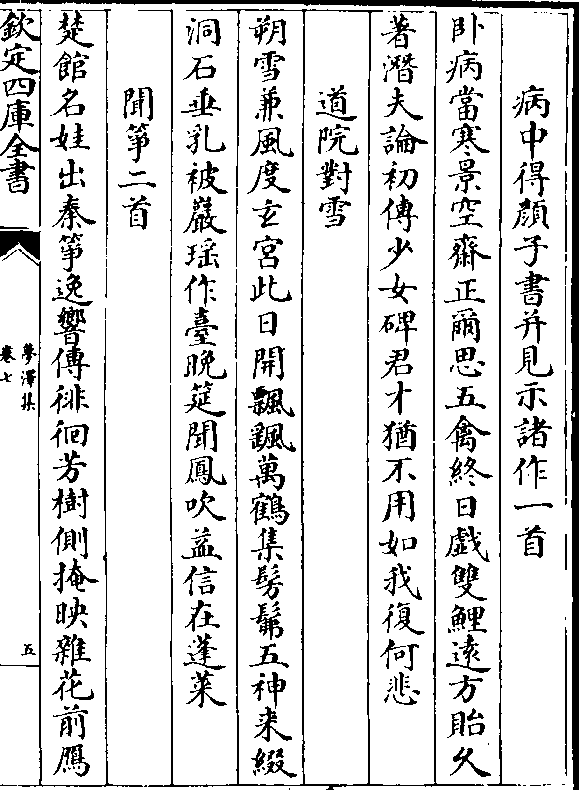 病中得顔子書并見示諸作一首
卧病當寒景空齋正爾思五禽終日戯雙鯉逺方貽久
著潛夫論初傳少女碑君才猶不用如我復何悲
道院對雪
朔雪兼風度玄宮此日開飄飖萬鶴集髣髴五神来綴
洞石垂乳被巖瑶作臺晩筵聞鳳吹益信在蓬莱
聞箏二首
楚館名娃出秦箏逸響傳徘徊芳樹側掩映雜花前鴈
欽定四庫全書
夢澤集
卷七
五